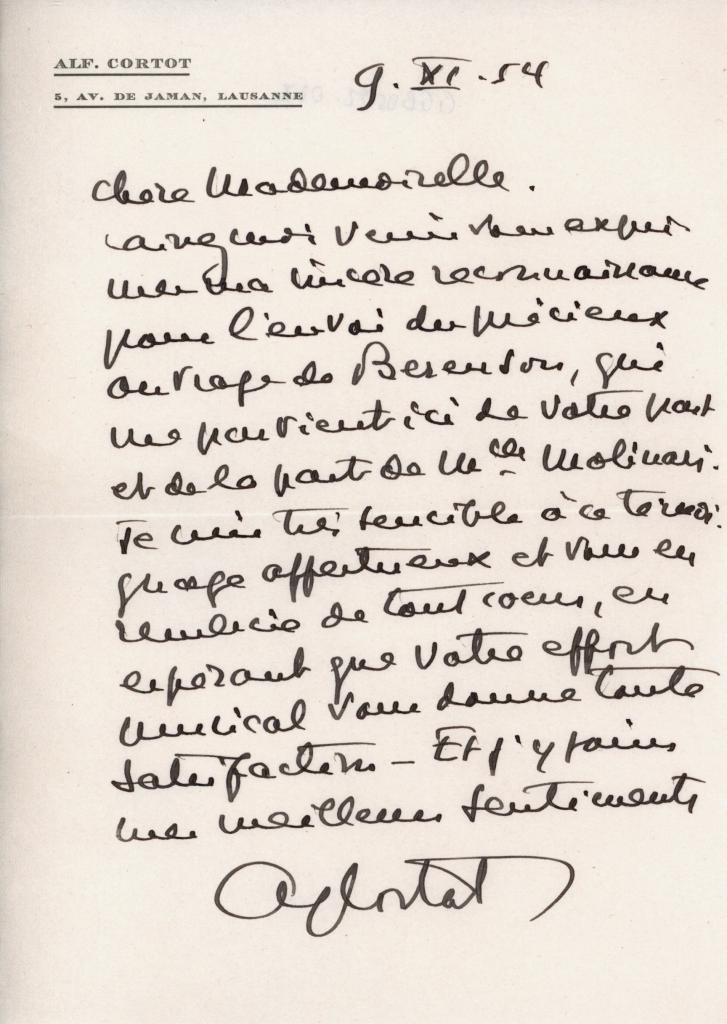 ALF. CORTOT
5, AV. DE JAMAN, LAUSANNE
9. XI. 54
Chère Mademoiselle.
Laissez moi venir vous expri-
mer ma sincère reconnaissance
pour l'envoi du précieux
ouvrage de Berenson, qui
me parvient ici de votre part
et de la part de Melle Molinari.
Je suis très sensible à ce témoi-
gnage affectueux et vous en
remercie de tout coeur, en
espérant que votre effort
musical vous donne toute
satisfaction - Et j'y joins
mes meilleurs sentiments
A Cortot